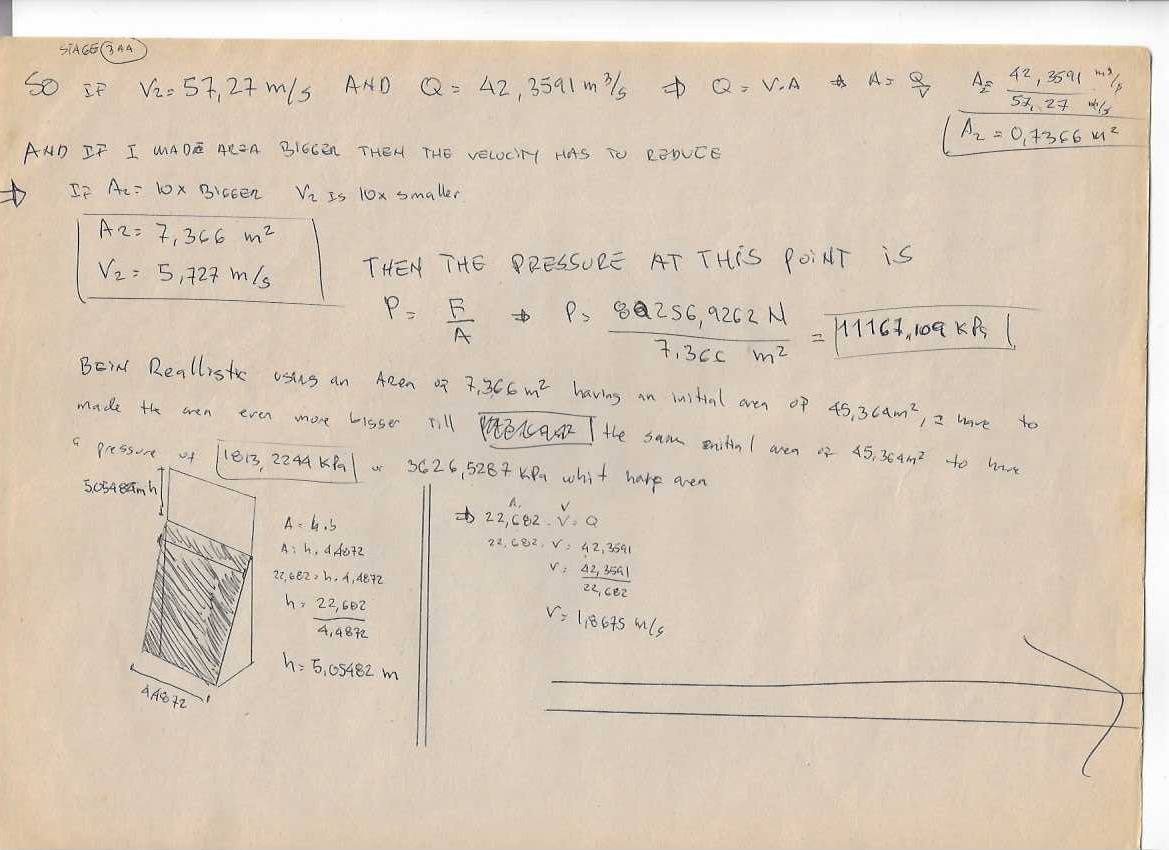 STAGE 3AA
SO IF V2= 57,27 m/s AND Q= 42,3591 m³/s ⇒ Q= V.A ⇒ A= Q/V A2= 42,3591 m³/s / 57,27 m/s
A2 = 0,7366 m²
AND IF I MADE AREA BIGGER THEN THE VELOCITY HAS TO REDUCE
⇒ IF A2= 10x BIGGER V2 IS 10x smaller
A2= 7,366 m²
V2= 5,727 m/s
THEN THE PRESSURE AT THIS POINT IS
P= F/A ⇒ P= 256,9262 N / 7,366 m² = 11167,109 KPa
BEIN Reallistic using an Area of 7,366m² having an initial area of 45,364m², I have to
made the aren even more bigger till the same initial area of 45,364m² to have
a pressure of 1813,2244 KPa or 3626,5287 KPa whit area
5,05482m h
A= h.b
A= h. 4,4872
22,682= h. 4,4872
h= 22,682 / 4,4872
h= 5,05482 m
4,4872
A. V
⇒ 22,682 . V= Q
22,682. V= 42,3591
V= 42,3591 / 22,682
V= 1,8675 m/s